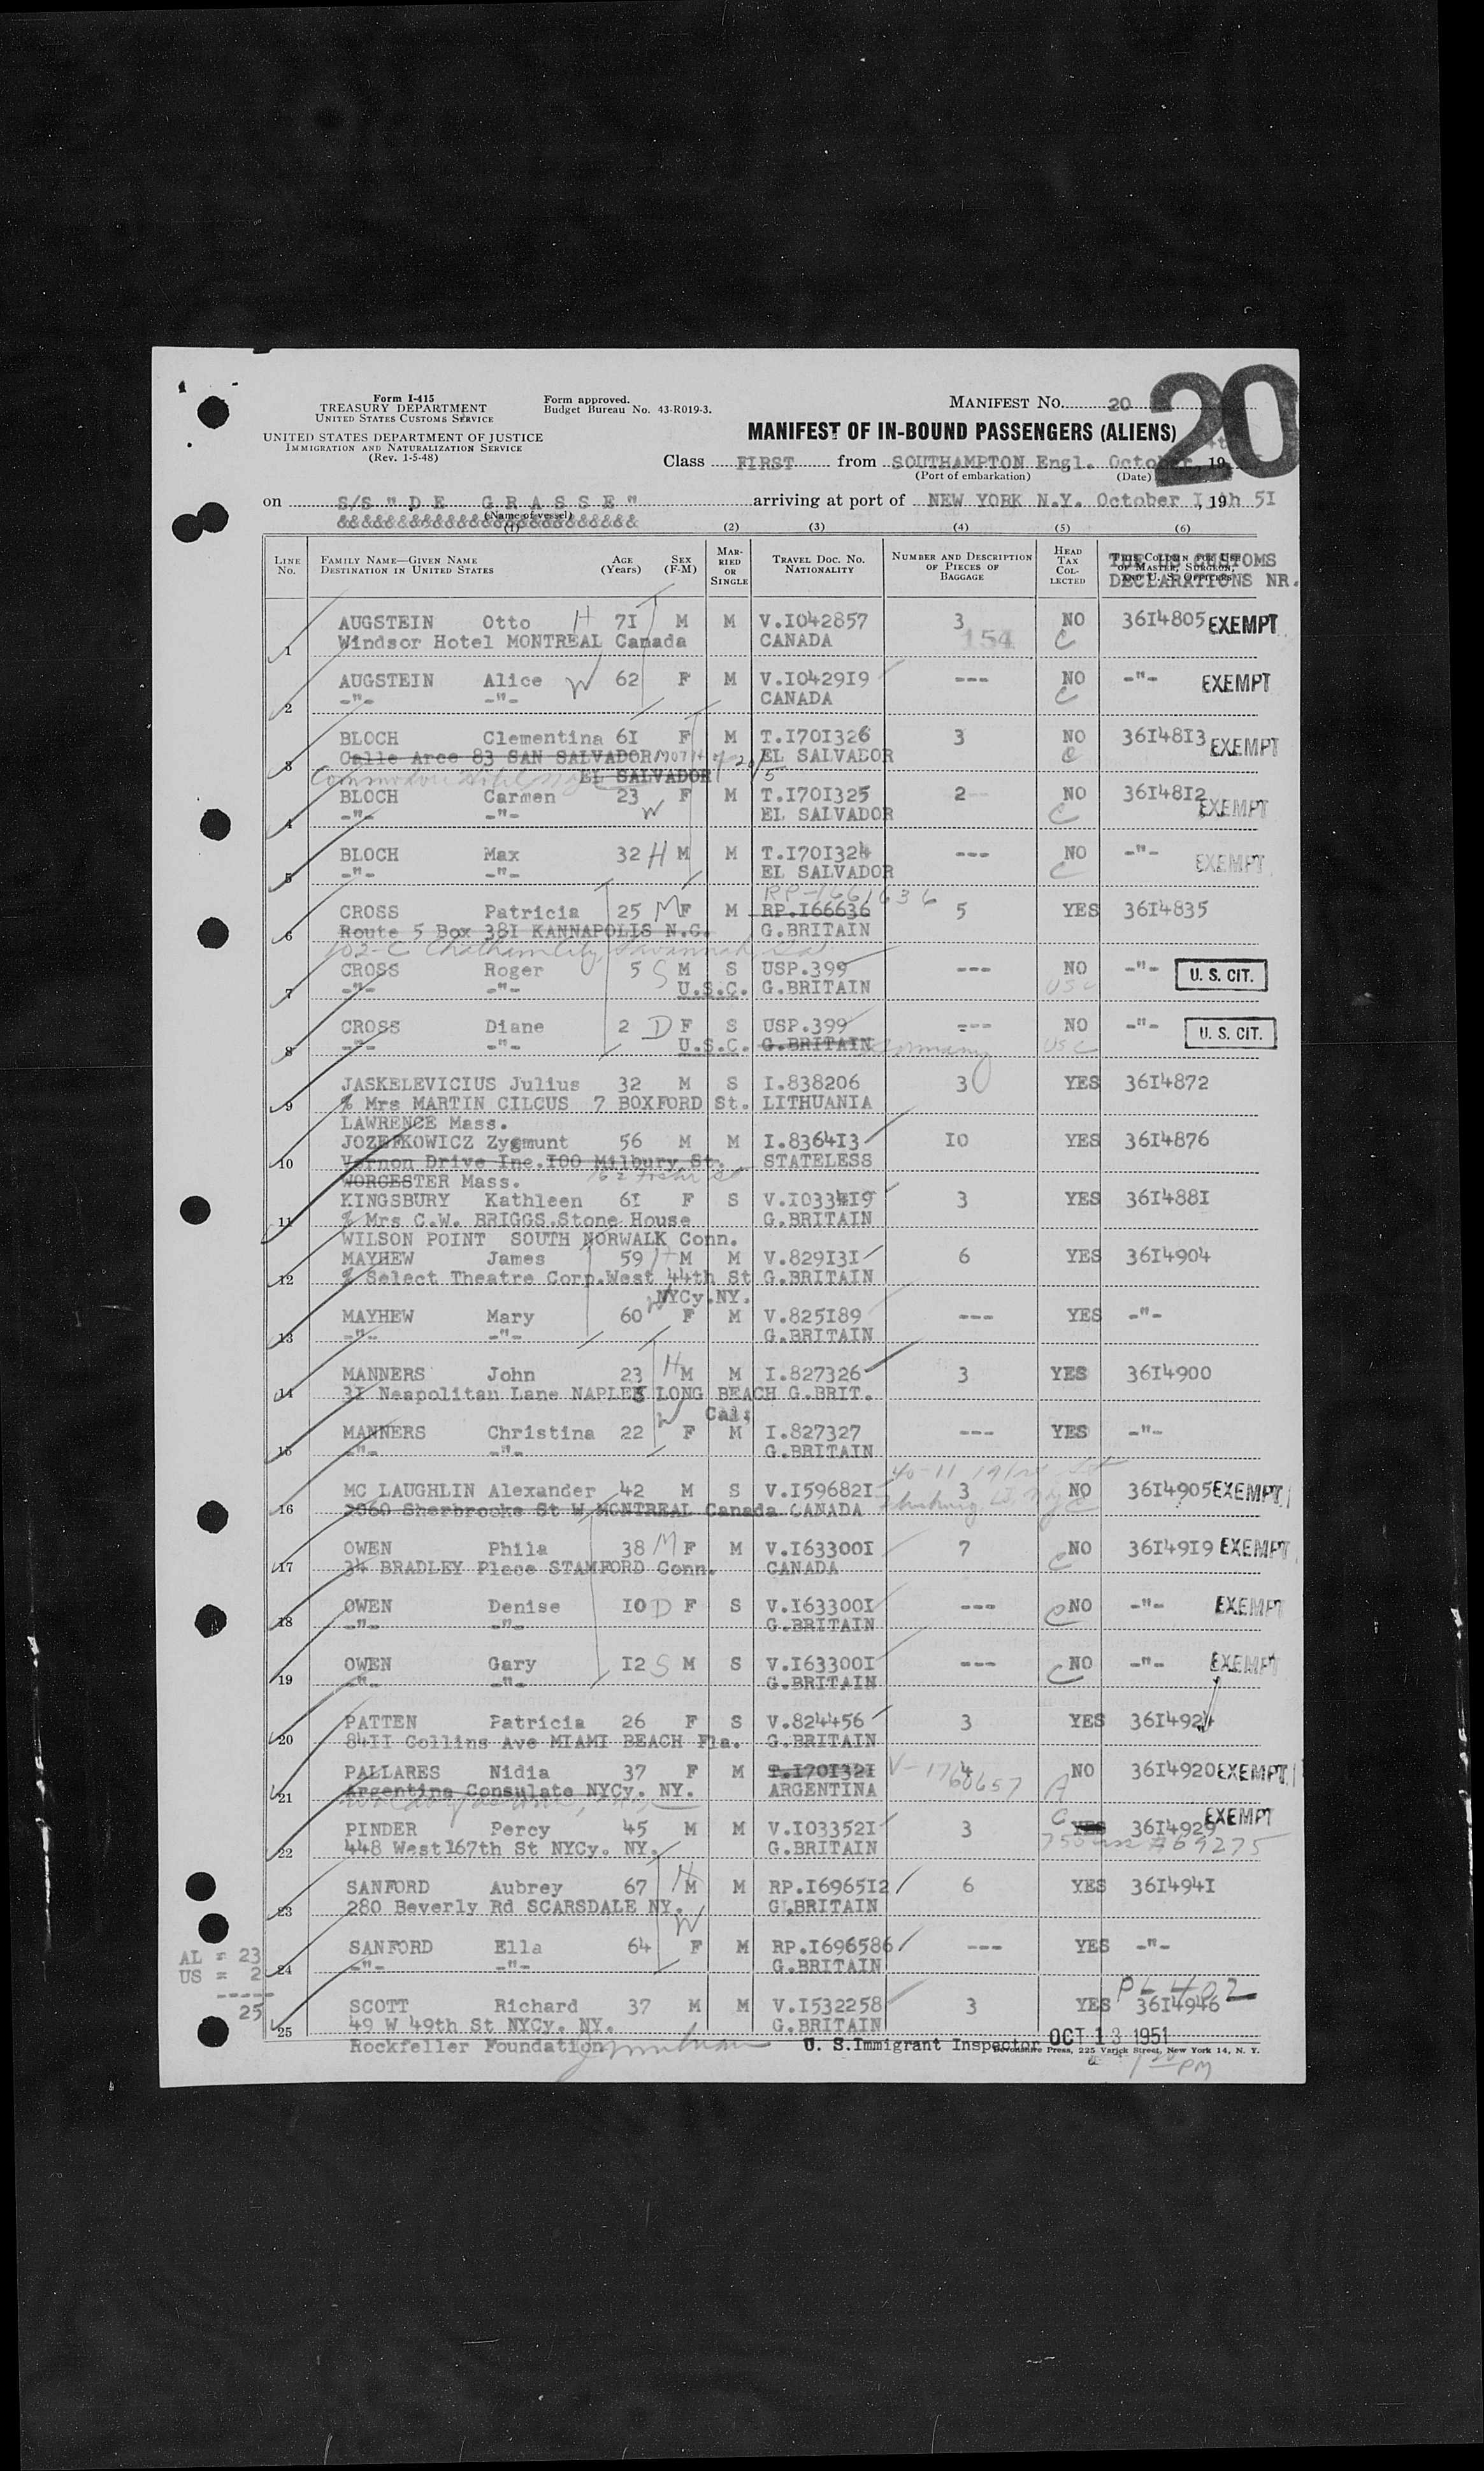 Form I-415
TREASURY DEPARTMENT
UNITED STATES CUSTOMS SERVICE
UNITED STATES DEPARTMENT OF JUSTICE
IMMIGRATION AND NATURALIZATION SERVICE
(Rev. 1-5-48)
Form approved.
Budget Bureau No. 43-R019-3.
MANIFEST NO. 20
20
MANIFEST OF IN-BOUND PASSENGERS (ALIENS)
Class FIRST from SOUTHAMPTON Engl. October , 19
(Port of embarkation) (Date)
on S/S " D E G R A S S E " arriving at port of NEW YORK N.Y. October I , 19 5I
(Name of vessel)
(1) (2) (3) (4) (5) (6)
LINE No. FAMILY NAME—GIVEN NAME DESTINATION IN UNITED STATES AGE (Years) SEX (F-M) MARRIED OR SINGLE TRAVEL DOC. NO. NATIONALITY NUMBER AND DESCRIPTION OF PIECES OF BAGGAGE HEAD TAX COLLECTED THIS COLUMN FOR USE OF MASTER, SURGEON, AND U. S. OFFICERS
CUSTOMS
DECLARATIONS NR.
AUGSTEIN Otto H 7I M M V.I042857 3 NO 36I4805 EXEMPT
1 Windsor Hotel MONTREAL Canada CANADA 154 C
AUGSTEIN Alice W 62 F M V.I0429I9 --- NO -"- EXEMPT
2 -"- -"- CANADA C
BLOCH Clementina 6I F M T.I70I326 3 NO 36I48I3 EXEMPT
3 Calle Arce 83 SAN SALVADOR EL SALVADOR C
EL SALVADOR
BLOCH Carmen 23 W F M T.I70I325 2 NO 36I48I2 EXEMPT
4 -"- -"- EL SALVADOR C
BLOCH Max 32 H M M T.I70I324 --- NO -"- EXEMPT
5 -"- -"- EL SALVADOR C
RP-1661636
CROSS Patricia 25 M F M RP.I66636 5 YES 36I4835
6 Route 5 Box 38I KANNAPOLIS N.C. G.BRITAIN
102-C Chatham City, Savannah, Ga.
CROSS Roger 5 S M S USP.399 --- NO -"- U. S. CIT.
7 -"- -"- U.S.C. G.BRITAIN USC
CROSS Diane 2 D F S USP.399 --- NO -"- U. S. CIT.
8 -"- -"- U.S.C. G.BRITAIN Germany USC
JASKELEVICIUS Julius 32 M S I.838206 3 YES 36I4872
9 % Mrs MARTIN CILCUS 7 BOXFORD St. LITHUANIA
LAWRENCE Mass.
JOZEFKOWICZ Zygmunt 56 M M I.8364I3 I0 YES 36I4876
10 Vernon Drive Inc.I00 Milbury St. STATELESS
WORCESTER Mass.
KINGSBURY Kathleen 6I F S V.I0334I9 3 YES 36I488I
11 % Mrs C.W. BRIGGS.Stone House G.BRITAIN
WILSON POINT SOUTH NORWALK Conn.
MAYHEW James 59 H M M V.829I3I 6 YES 36I4904
12 % Select Theatre Corp.West 44th St G.BRITAIN
NYCy.NY.
MAYHEW Mary 60 W F M V.825I89 --- YES -"-
13 -"- -"- G.BRITAIN
MANNERS John 23 H M M I.827326 3 YES 36I4900
14 3I Neapolitan Lane NAPLES LONG BEACH G.BRIT.
Cal;
MANNERS Christina 22 W F M I.827327 --- YES -"-
15 -"- -"- G.BRITAIN
MC LAUGHLIN Alexander 42 M S V.I59682I 3 NO 36I4905 EXEMPT
16 3060 Sherbrooke St W.MONTREAL Canada CANADA Flushing, C
OWEN Phila 38 M F M V.I63300I 7 NO 36I49I9 EXEMPT
17 34 BRADLEY Place STAMFORD Conn. CANADA C
OWEN Denise I0 D F S V.I63300I --- C NO -"- EXEMPT
18 -"- -"- G.BRITAIN
OWEN Gary I2 S M S V.I63300I --- C NO -"- EXEMPT
19 -"- -"- G.BRITAIN
PATTEN Patricia 26 F S V.824456 3 YES 36I4924
20 84II Collins Ave MIAMI BEACH Fla. G.BRITAIN
PALLARES Nidia 37 F M T.I70I32I V-1760657 4 NO 36I4920 EXEMPT
21 Argentina Consulate NYCy. NY. ARGENTINA A
PINDER Percy 45 M M V.I03352I 3 C YES 36I4929 EXEMPT
22 448 West 167th St NYCy. NY. G.BRITAIN
SANFORD Aubrey 67 H M M RP.I6965I2 6 YES 36I494I
23 280 Beverly Rd SCARSDALE NY. G.BRITAIN
SANFORD Ella 64 W F M RP.I696586 --- YES -"-
24 -"- -"- G.BRITAIN
AL = 23
US = 2
-----
25
PL 402
SCOTT Richard 37 M M V.I532258 3 YES 36I4946
25 49 W 49th St NYCy. NY. G.BRITAIN
Rockfeller Foundation U. S. Immigrant Inspector OCT 13 1951
Devonshire Press, 225 Varick Street, New York 14, N. Y.
PM